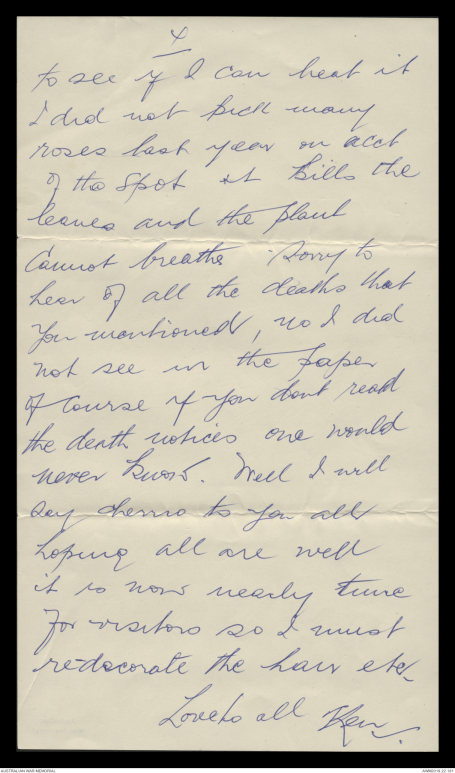 4
to see if I can beat it
I did not pick many
roses last year on acct
of the spot it kills the
leaves and the plant
Cannot breathe Sorry to
hear of all the deaths that
you mentioned, no I did
not see in the paper
of course if you dont read
the death notices one would
never know. Well I will
say cherrio to you all
hoping all are well
it is now nearly time
for visitors so I must
re-decorate the hair etc.
Love to all Ken.
AUSTRALIAN WAR MEMORIAL